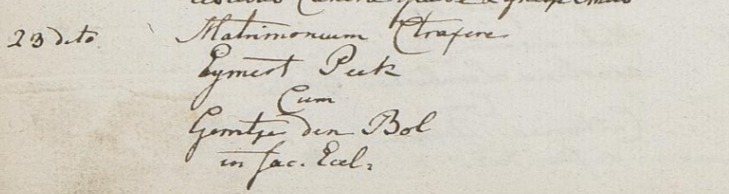 23 dito Matrimonium Ctraxere
Eymert Peek
Cum
Gerritje den Bol
in fac. Eccl.